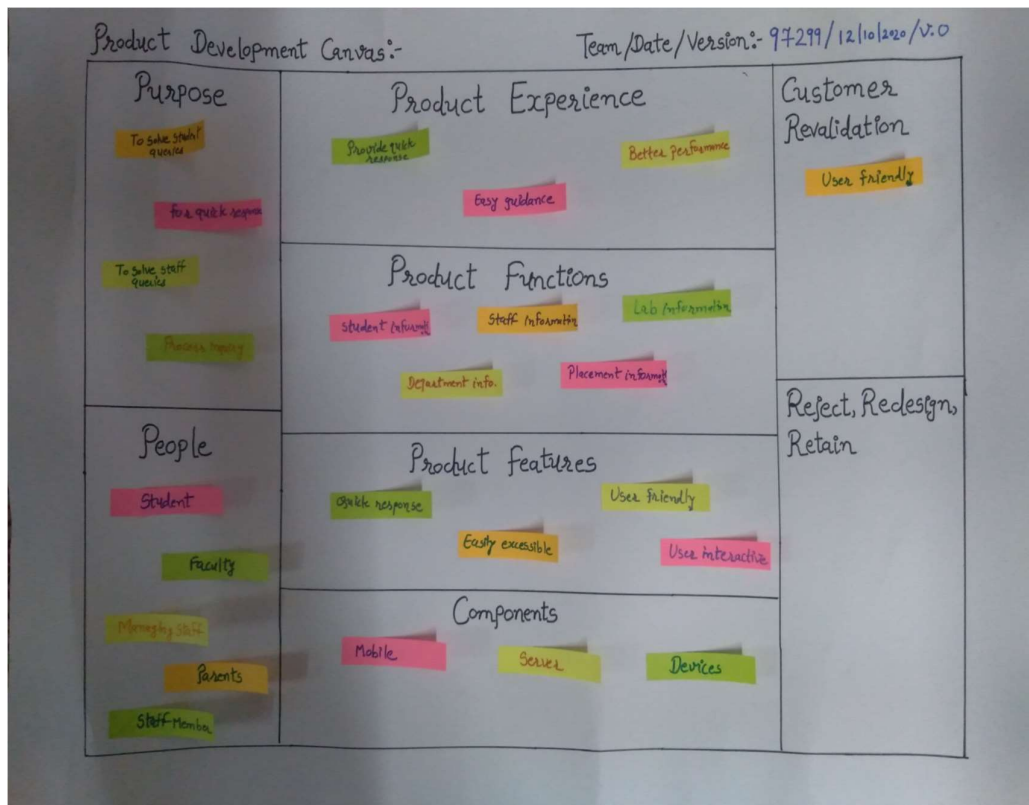 Product Development Canvas:-
Team/Date/Version:- 97299/12/10/2020/V.0
Purpose
To solve student
queries
for quick response
To solve staff
queries
Process
People
Student
Faculty
Managing staff
Parents
Staff Member
Product Experience
Provide quick
response
Better performance
Easy guidance
Product Functions
Student informati
Staff information
Lab information
Department info.
Placement informati
Product Features
Quick response
User friendly
Easily excessible
User interactive
Components
Mobile
Server
Devices
Customer
Revalidation
User friendly
Reject, Redesign,
Retain